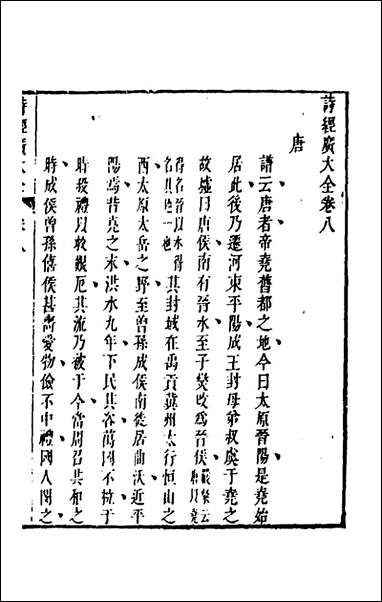 詩經廣大全卷八
唐
譜云唐者帝堯舊都之地今曰太原晉陽是堯始
居此後乃遷河東平陽成王封母弟叔虞于堯之
故墟曰唐侯南有晉水至子燮改爲晉侯
得名晉以水得
名其地一也
其封域在禹貢冀州太行恒山之
西太原太岳之野至曾孫成侯南徙居曲沃近平
陽焉昔堯之末洪水九年下民其咨萬國不粒于
時殺禮以救艱厄其流乃被于今當周召共和之
時成侯曾孫僖侯甚嗇愛物儉不中禮國人閔之
詩經廣大全
卷八